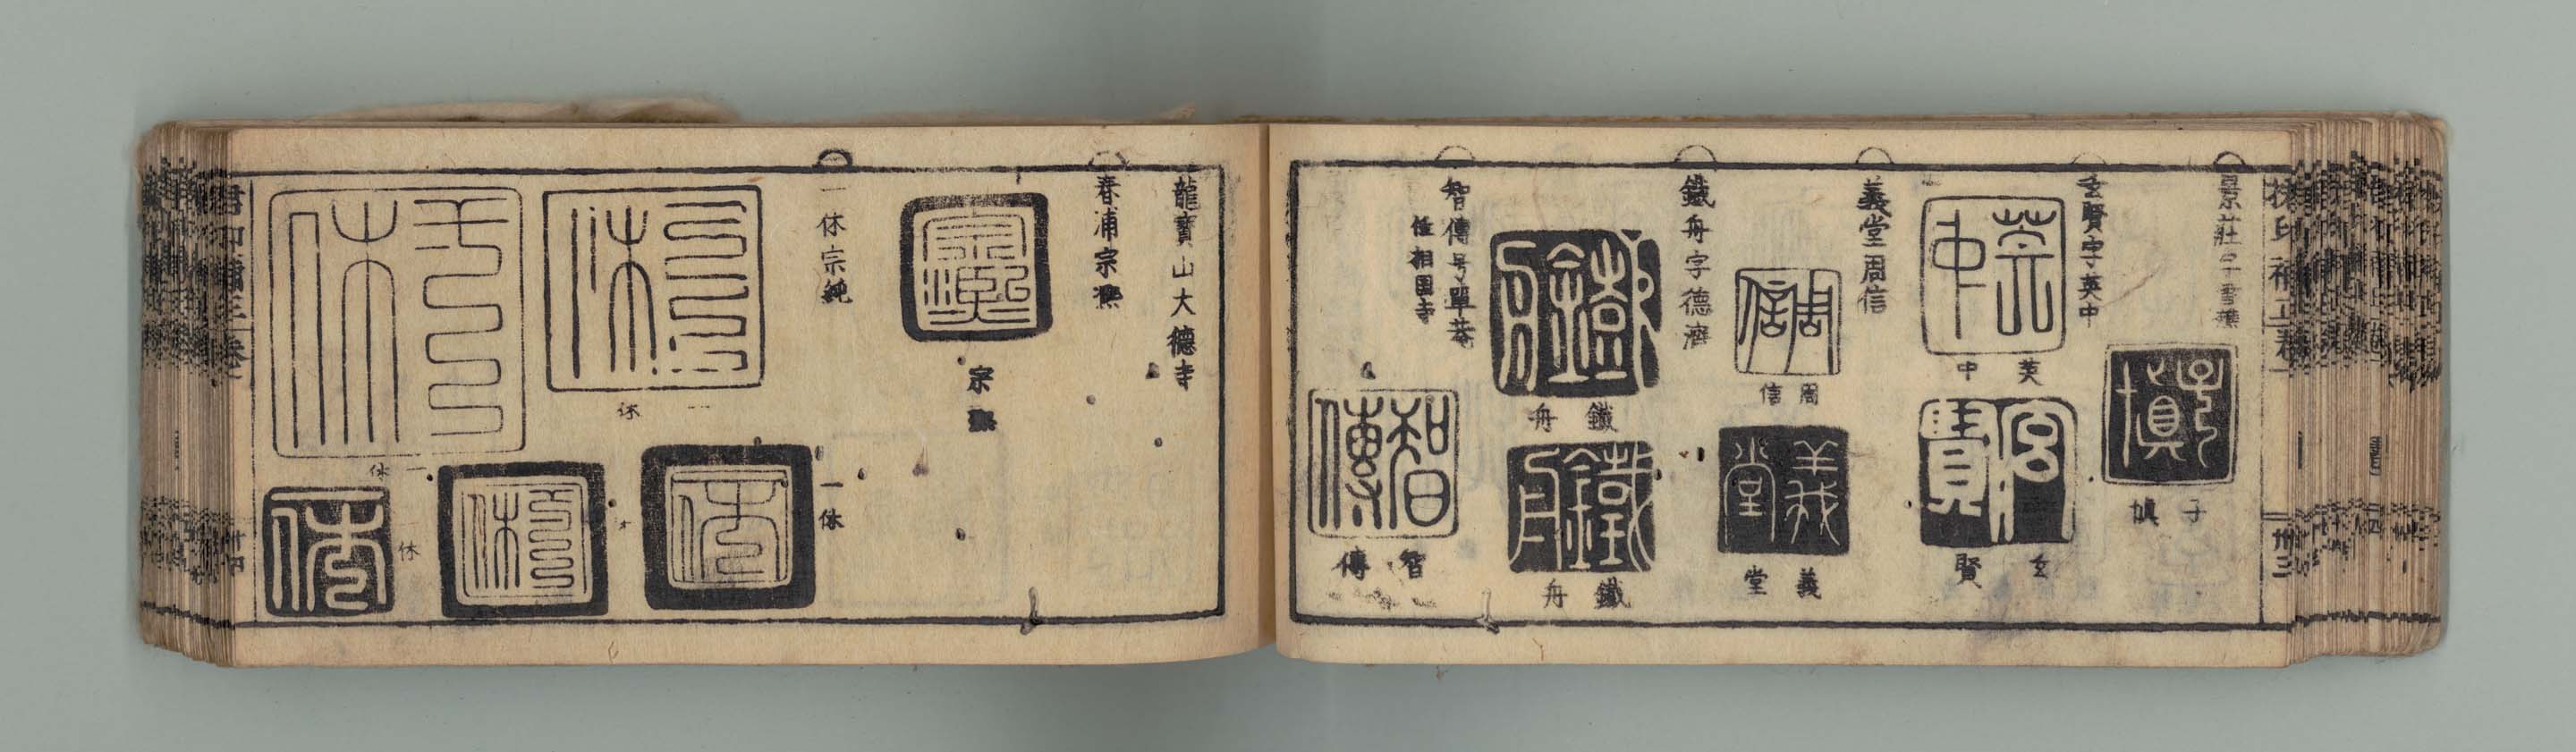 子
玄賢字英中
英中
玄賢
義堂周信
周信
義堂
鐵舟字德濟
鐵舟
鐵舟
智傳号單菴
住相國寺
智傳
龍寶山大德寺
春浦宗熈
宗熈
一休宗純
一休
一休
一休
休